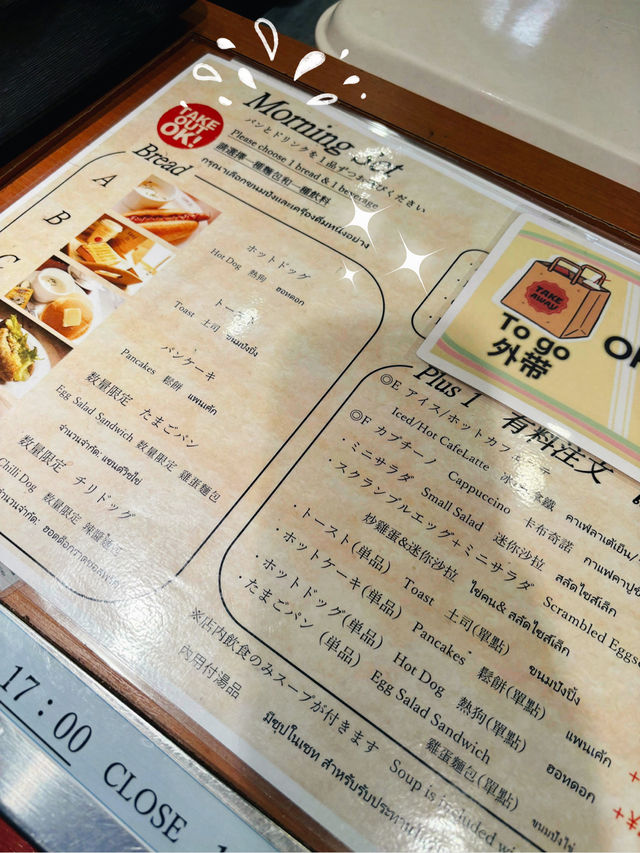 TAKE
OUT
OK!
Morning Set
パンとドリンクを1品ずつお選びください
Please choose 1 bread & 1 beverage
請選擇一種麵包和一種飲料
กรุณาเลือกขนมปังและเครื่องดื่มหนึ่งอย่าง
Bread
A
ホットドッグ
Hot Dog 熱狗 ฮอทดอก
B
トースト
Toast 土司 ขนมปังปิ้ง
C
パンケーキ
Pancakes 鬆餅 แพนเค้ก
数量限定 たまごパン
Egg Salad Sandwich 數量限定 雞蛋麵包
จำนวนจำกัด: แซนด์วิชไข่
数量限定 チリドッグ
Chili Dog 數量限定 辣醬熱狗
จำนวนจำกัด:
TAKE
AWAY
To go
外帶
Plus 1 有料注文
◎E アイス/ホットカフェラテ
Iced/Hot CafeLatte 冰 拿鐵 คาเฟ่ลาเต้เย็น/
◎F カプチーノ Cappuccino 卡布奇諾
・ミニサラダ Small Salad 迷你沙拉 สลัดไซส์เล็ก
・スクランブルエッグ+ミニサラダ Scrambled Eggs
炒雞蛋&迷你沙拉 ไข่คน& สลัดไซส์เล็ก
・トースト(単品) Toast 土司(單點) ขนมปังปิ้ง
・ホットケーキ(単品) Pancakes 鬆餅(單點) แพนเค้ก
・ホットドッグ(単品) Hot Dog 熱狗(單點) ฮอทดอก
・たまごパン (単品) Egg Salad Sandwich
雞蛋麵包(單點) ขนมปังไข่
※店内飲食のみスープが付きます Soup is included
內用付湯品
มีซุปในเซท สำหรับรับประทาน
17:00 CLOSE